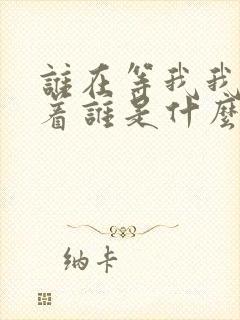 誰在等我我
着誰是什麼
纳卡